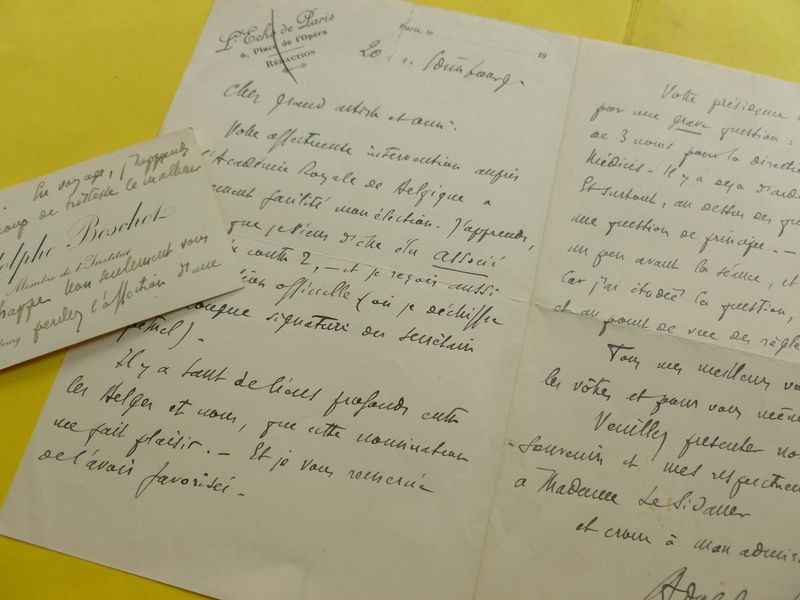 L'Echo de Paris
6, Place de l'Opéra
RÉDACTION
Paris, le
19
20
Cher grand artiste et ami.
Votre affectueuse intervention auprès
Académie Royale de Belgique a
facilité mon élection. J'apprends,
que je viens d'être élu associé
contre 2, – et je reçois aussi
officielle (où je déchiffre
signature du secrétaire
Il y a tant de liens profonds entre
les Belges et nous, que cette nomination
me fait plaisir. – Et je vous remercie
de l'avoir favorisée –
Votre présidence
pour une grave question :
de 3 noms pour la direction
Médicis – Il y a déjà
Et surtout, au dessus des
une question de principe. –
un peu avant la séance, et
Car j'ai étudié la question,
et au point de vue des
Tous mes meilleurs
les vôtres et pour vous même
Veuillez présenter
souvenir et mes
à Madame Le Sidaner
et croire à mon
En voyage, j'apprends
de tristesse le malheur
Adolphe Boschot
Membre de l'Institut
frappe non seulement vous
perdez l'affection d'une